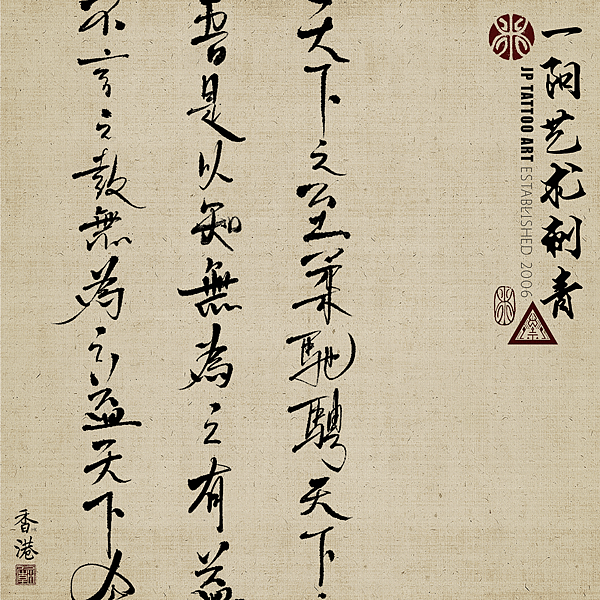 一阳艺术刺青
JP TATTOO ART ESTABLISHED 2006
天下之至柔馳騁天下
吾是以知無為之有益
不言之教無為之益天下
香港